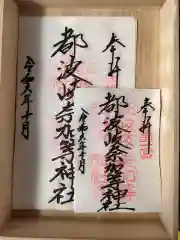 奉拝
都波岐奈加等神社
令和六年十月
奉拝
都波岐奈加等神社
令和六年十月